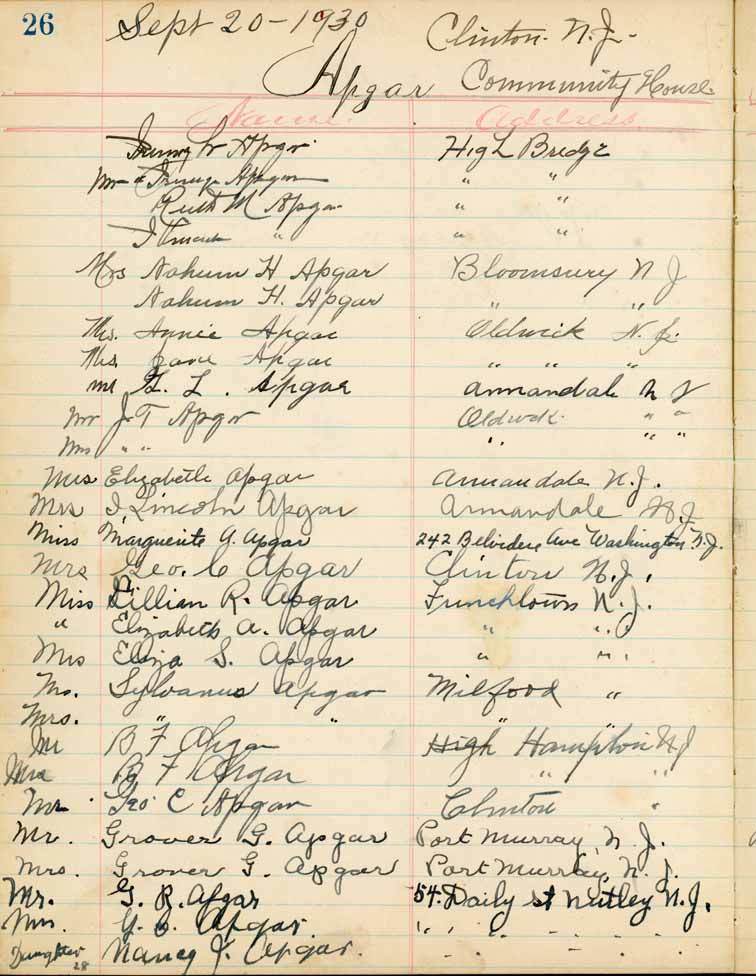 26
Sept 20-1930 Clinton. N.J.
Apgar Community House.
Name. Address.
W Apgar. High Bridge
Mr + Apgar " "
Ruth M Apgar " "
" " "
Mrs Nahum H Apgar Bloomsury N J
Nahum H. Apgar " "
Mrs. Annie Apgar Oldwick N.J.
Mrs. Apgar " " "
Mr G. L. Apgar Annandale N J
Mr J T Apgar Oldwick " "
Mrs " " " " "
Mrs Elizabeth Apgar Annandale N.J.
Mrs I Lincoln Apgar Annandale N J
Miss Marguerite A. Apgar 242 Belvidere Ave Washington N.J.
Mrs Geo. C Apgar Clinton N.J.
Miss Lillian R. Apgar Frenchtown N.J.
" Elizabeth A. Apgar " " "
Mrs Eliza S. Apgar " " "
Mr. Sylvanus Apgar Milford "
Mrs. " " "
Mr B F Apgar High Hampton NJ
Mrs B F Apgar " "
Mr. Geo C Apgar Clinton "
Mr. Grover G. Apgar Port Murray, N.J.
Mrs. Grover G. Apgar Port Murray, N.J.
Mr. G. R. Apgar 54 Daily st Nutley N.J.
Mrs. G. R. Apgar. " " " " "
Daughter Nancy J. Apgar. " " " " "
28